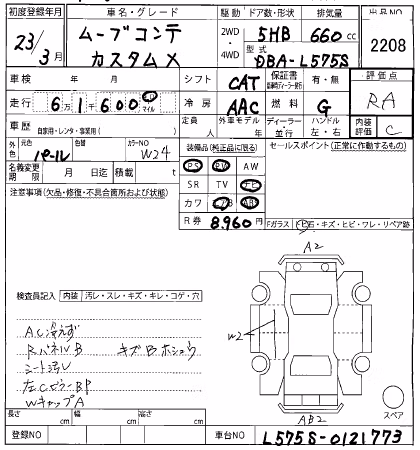 初度登録年月 車名・グレード 駆動 ドア数・形状 排気量 出品NO
23年3月 ムーブコンテ カスタムX 2WD・4WD 5HB 660cc 2208
型式 DBA-L575S
車検 年 月 シフト CAT 保証書 有・無 評価点
走行 6万1千600 km マイル 冷房 AAC 燃料 G RA
車歴 自家用・レンタ・事業用( ) 定員 人 外車モデル 年 ディーラー・並行 ハンドル 左・右 内装評価 C
外色 元色 パール 色替 カラーNO W24 装備品(純正品に限る) セールスポイント(正常に作動するもの)
名義変更期限 月 日迄 積載 t PS PW AW
注意事項(欠品・修復・不具合箇所および状態) SR TV ナビ
カワ AB
R券 8,960円 Fガラス 石・キズ・ヒビ・ワレ・リペア跡
A2
検査員記入 内装 汚レ・スレ・キズ・キレ・コゲ・穴
W2
AC冷えず
RパネルB キズBホシュウ
シート汚レ
左CピラーBP
WキャップA
AB2
スペア
長さ cm 幅 cm 高さ cm
登録NO 車台NO L575S-0121773